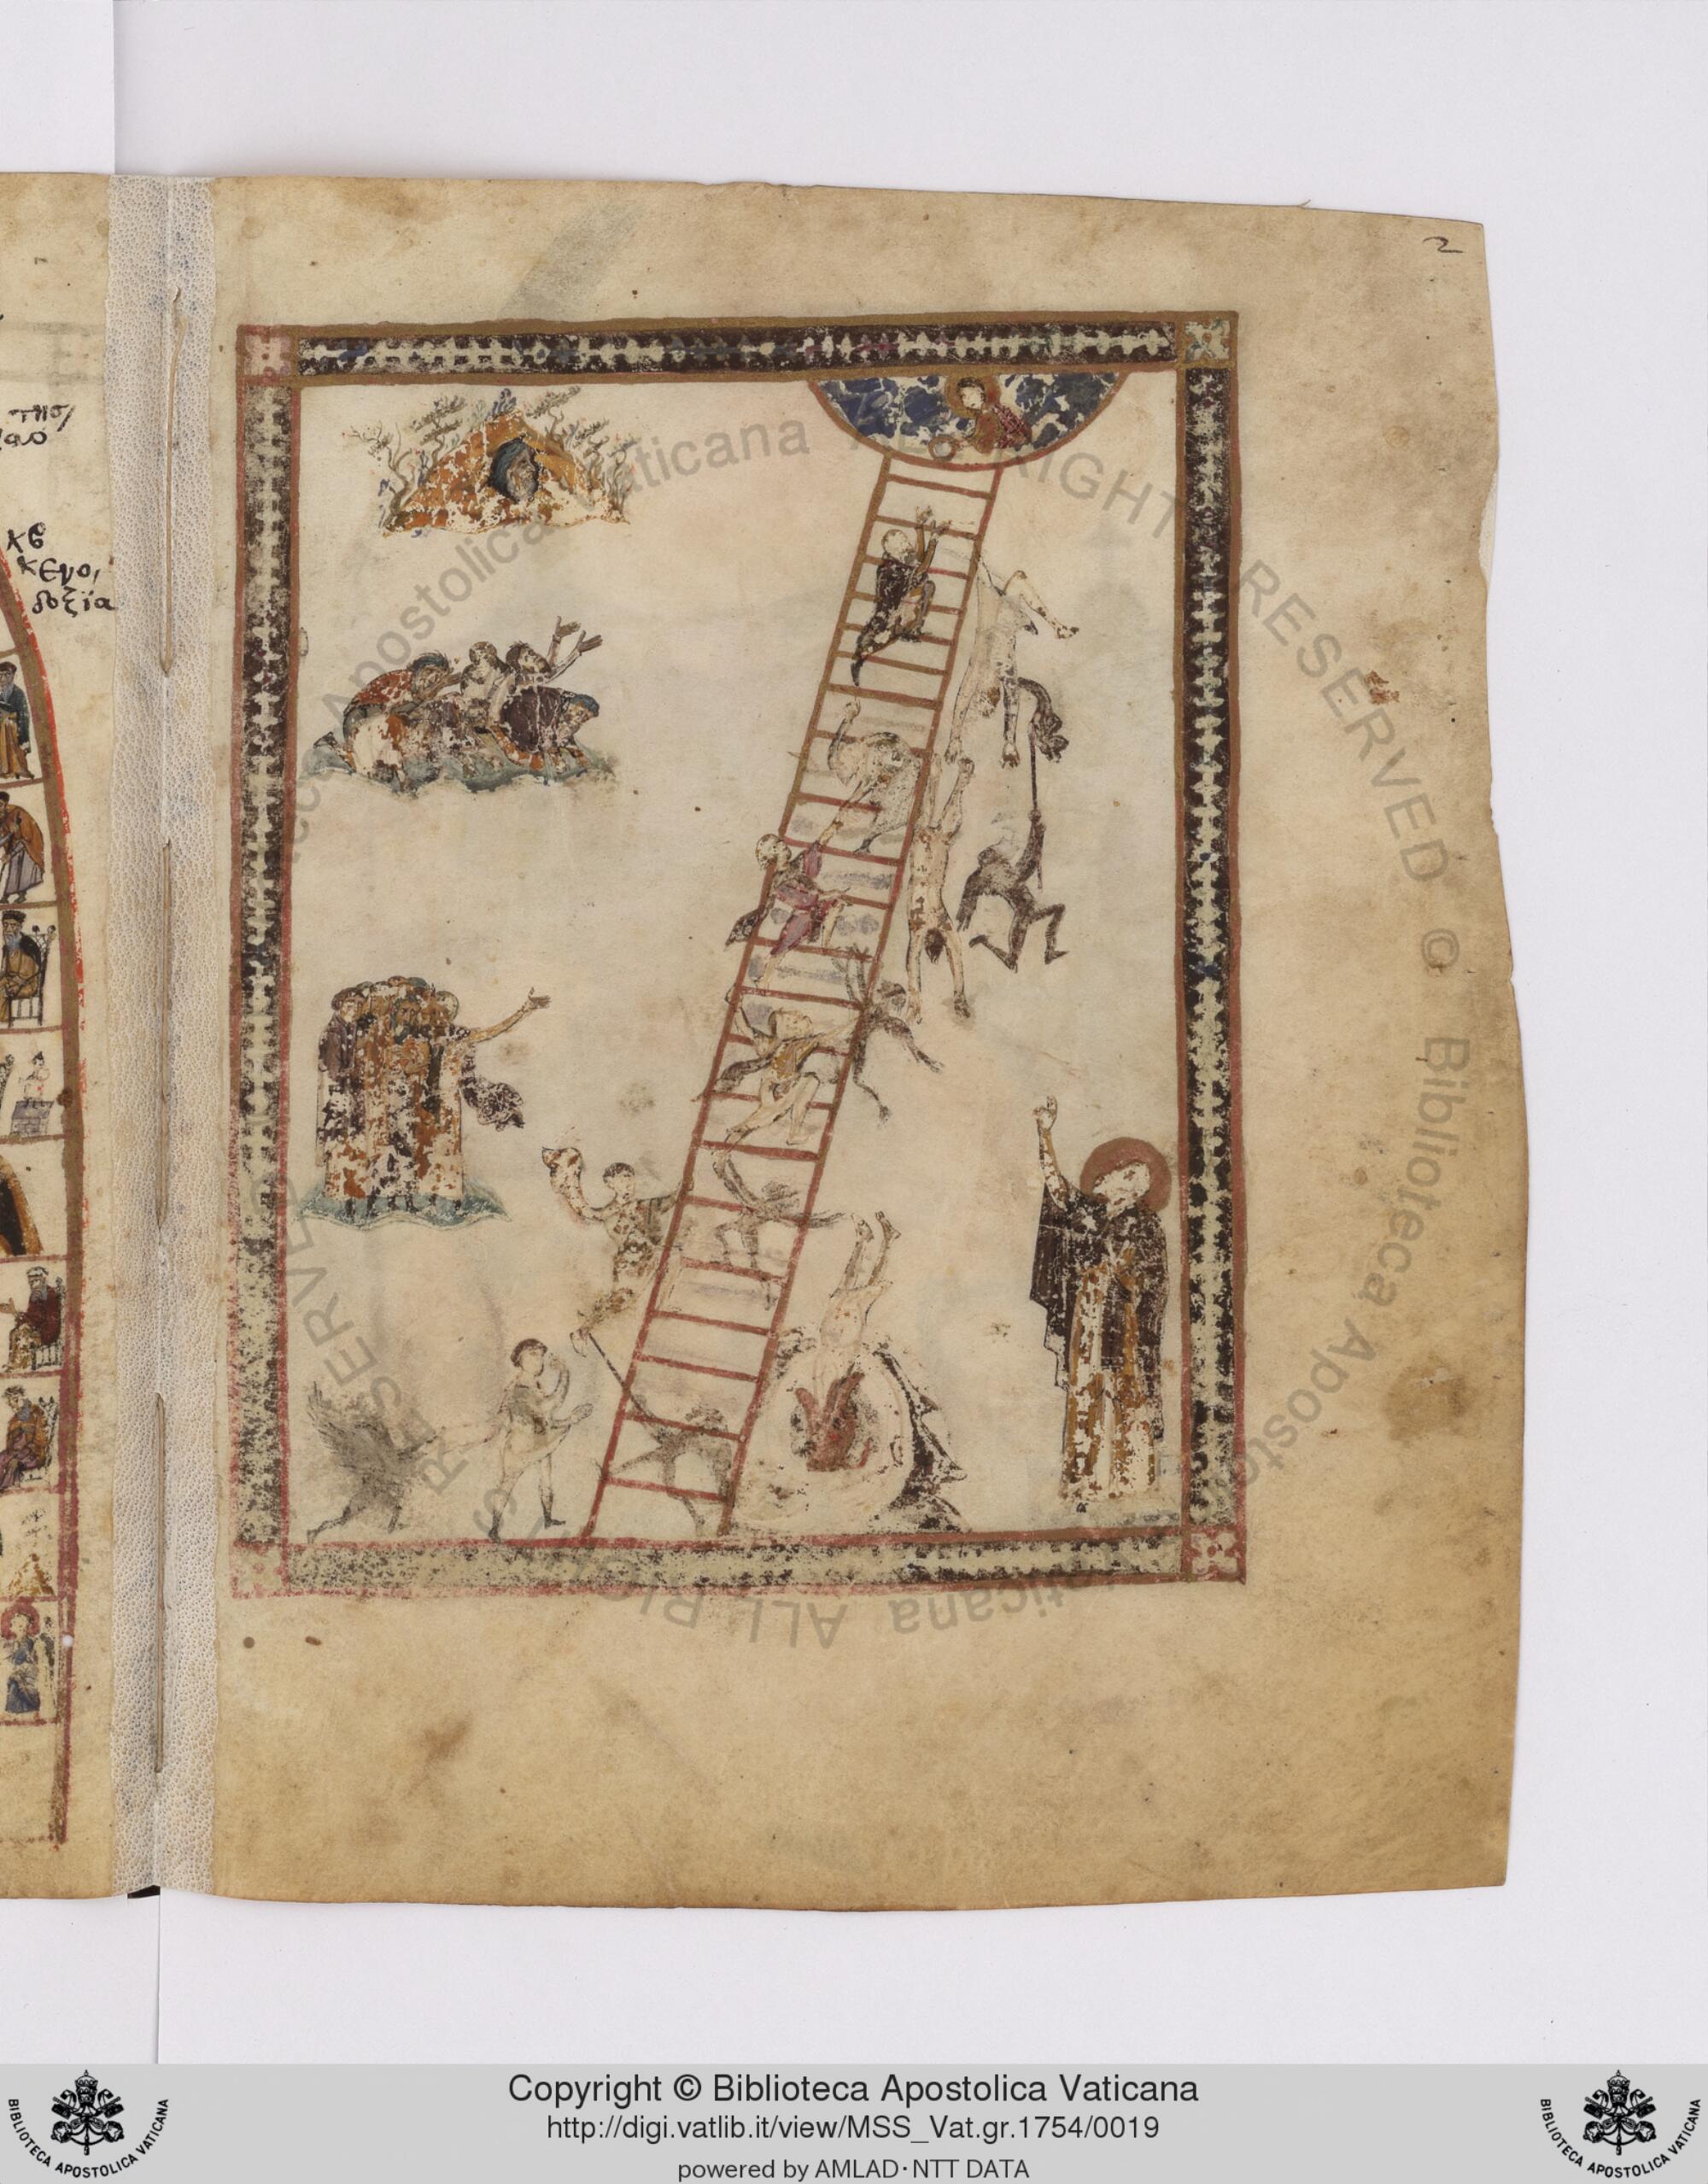 2
κε
κενο,
δοξΐα
Biblioteca Apostolica Vaticana ALL RIGHTS RESERVED © Biblioteca Apostolica Vaticana ALL RIGHTS RESERVED
Copyright © Biblioteca Apostolica Vaticana
http://digi.vatlib.it/view/MSS_Vat.gr.1754/0019
powered by AMLAD·NTT DATA
BIBLIOTECA APOSTOLICA VATICANA
BIBLIOTECA APOSTOLICA VATICANA